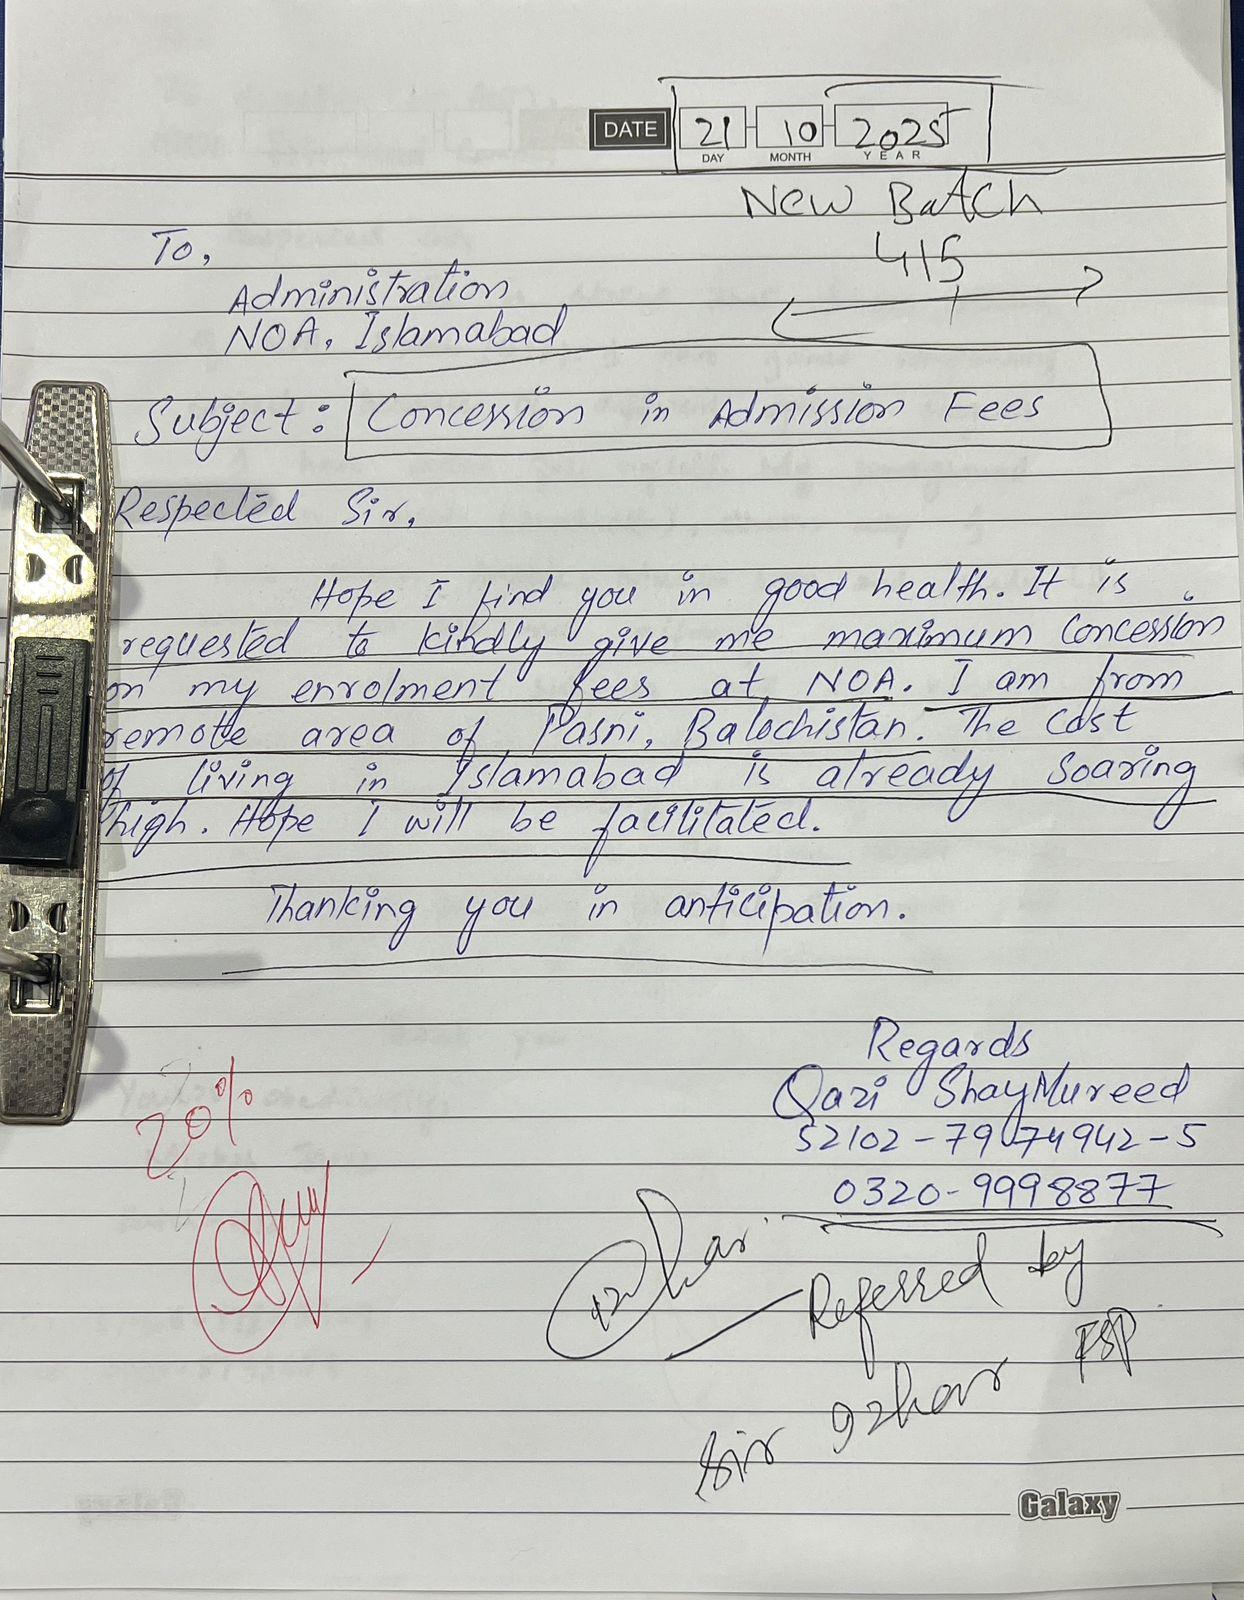 DATE 21 10 2025
DAY MONTH YEAR
New Batch
415
To,
Administration
NOA, Islamabad
Subject: Concession in Admission Fees
Respected Sir,
Hope I find you in good health. It is
requested to kindly give me maximum concession
on my enrolment fees at NOA. I am from
remote area of Pasni, Balochistan. The cost
of living in Islamabad is already soaring
high. Hope I will be facilitated.
Thanking you in anticipation.
Regards
Qazi ShayMureed
52102-7974942-5
0320-9998877
20%
Referred by
Sir Izhar FSP
Galaxy